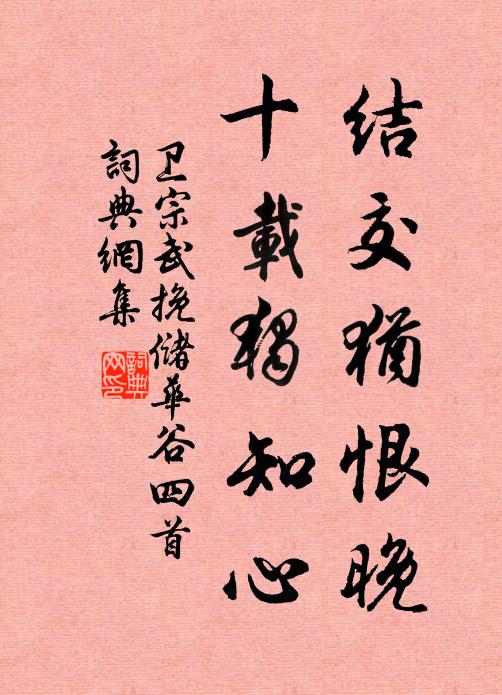 结交犹恨晚
十載独知心
卫宗武挽储華谷四首
詞典網集
詞典網印